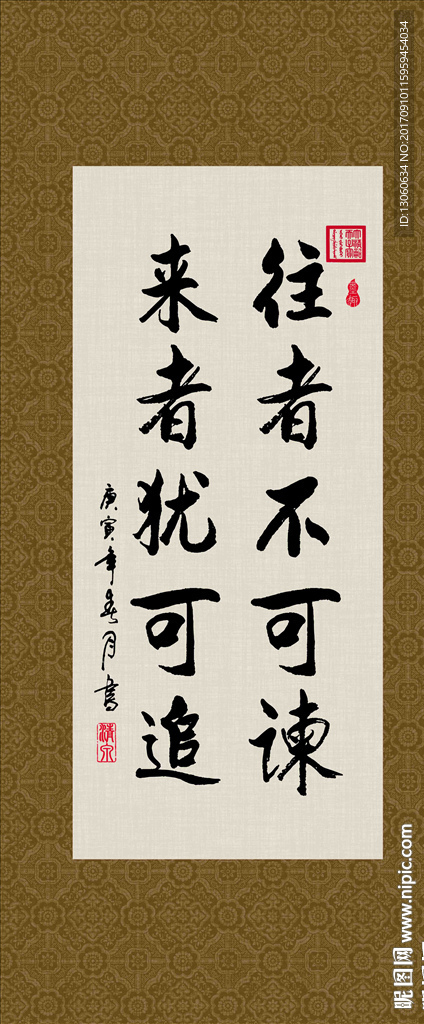 往者不可谏
来者犹可追
庚寅年春月书
ID:13060634 NO:20170910115959454034
昵图网 www.nipic.com